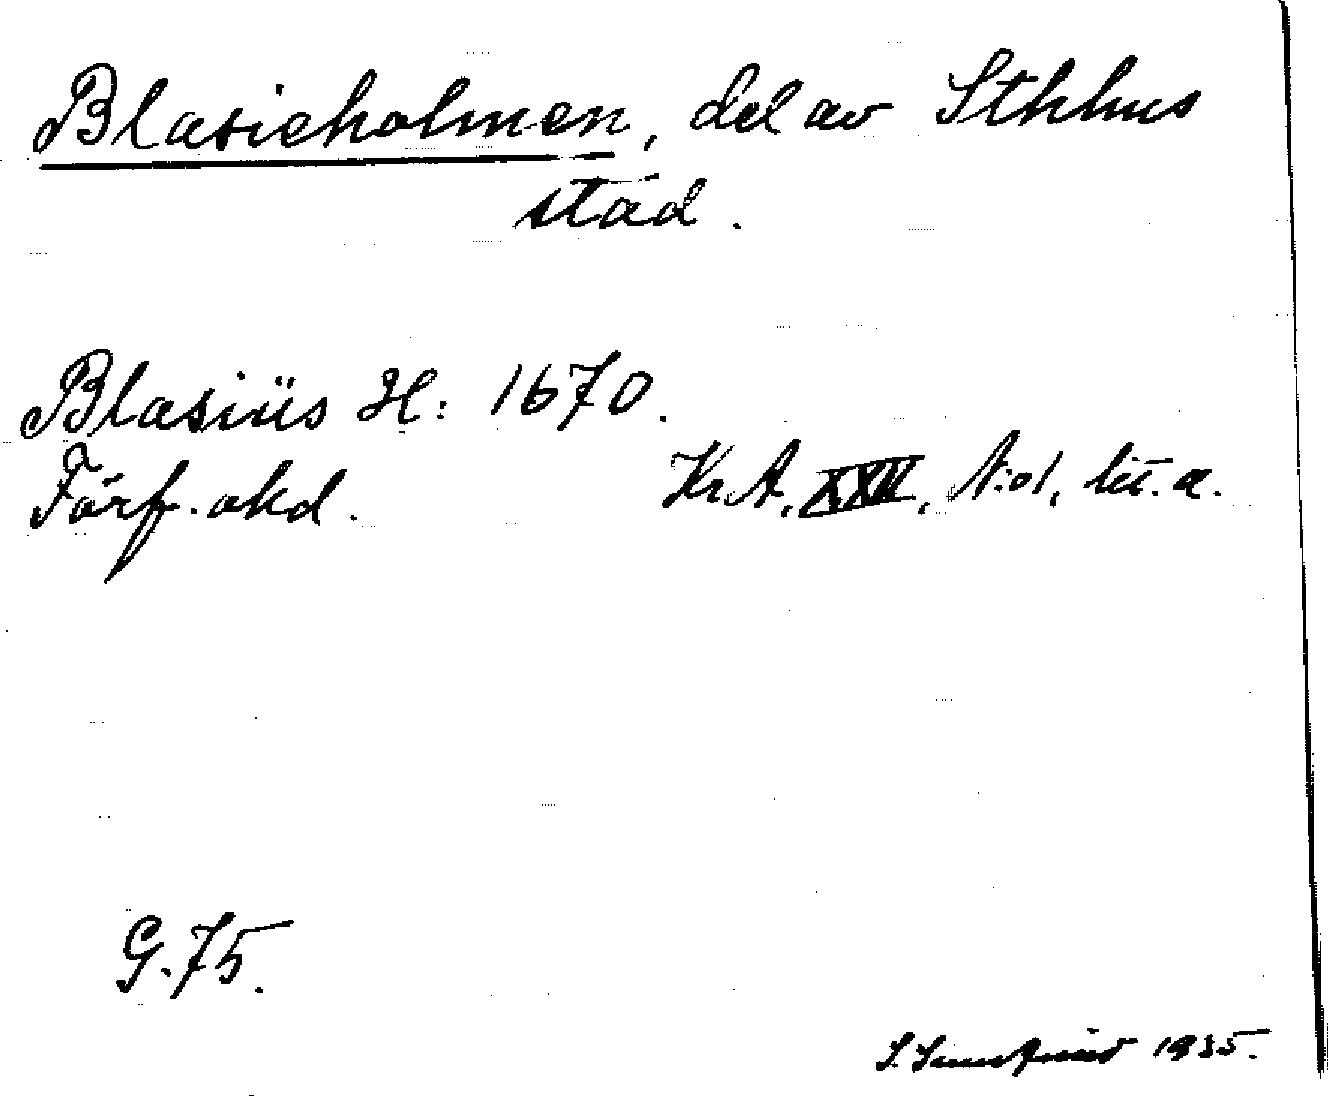 Blasieholmen, del av Sthlms
stad.
Blasiüs H: 1670.
Förf. okd. Kr.A., XXII, N:o1, lit. a.
G. 75.
S. 1935.